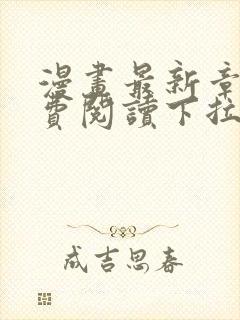 漫畫最新章
費閱讀下拉
成吉思春